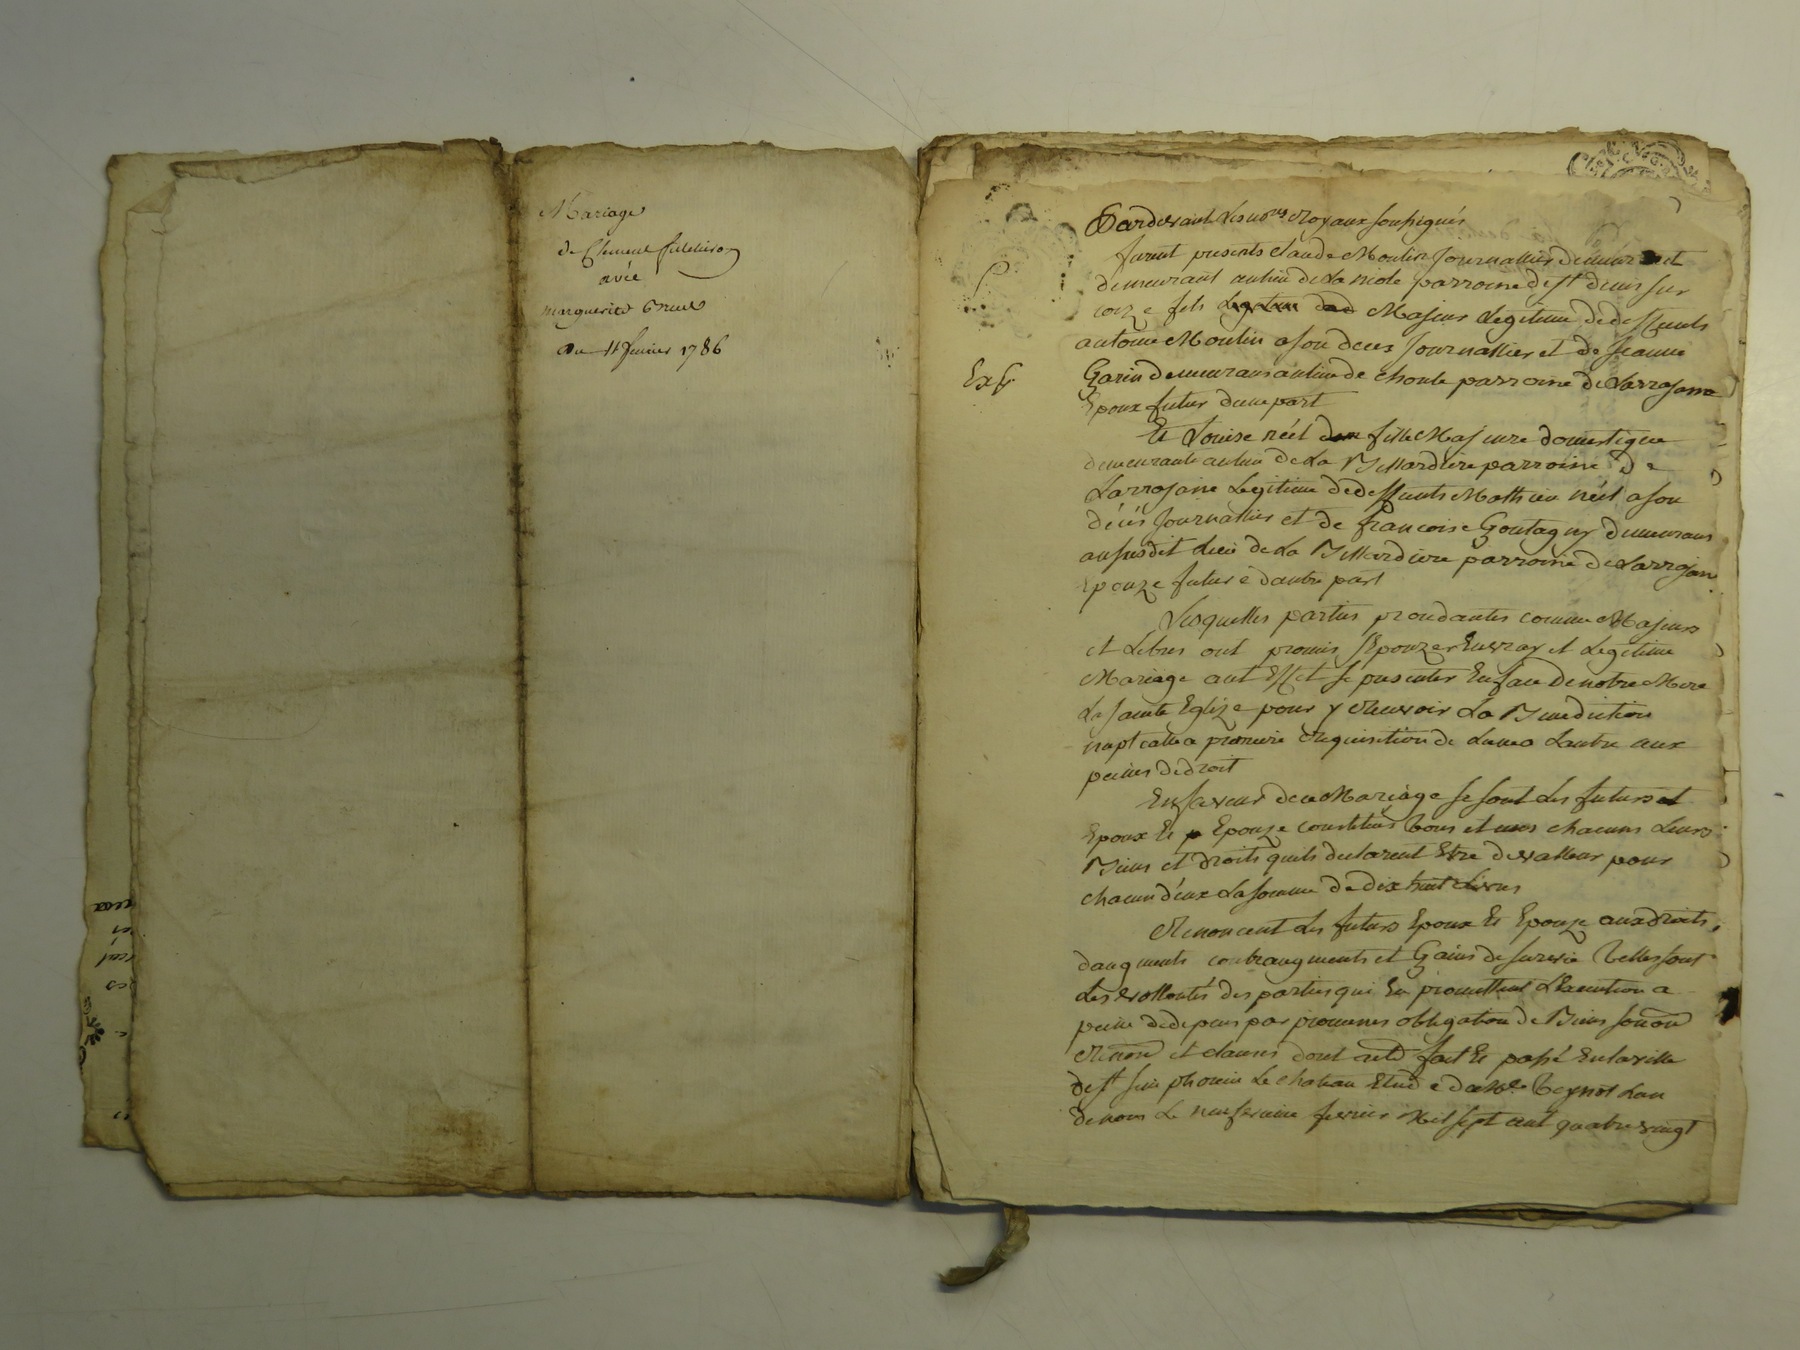 Mariage
de Clement
avéc
marguerite
Du 11 fevrier 1786
Pardevant Les nores Royaux soussignés
furent presents Claude Moulin Journallier demeurant
demeurant au lieu de La nicole parroisse de St denis sur
coize fils Majeur Legitime de deffunts
antoine Moulin a son deces Journallier et de Jeanne
Exp.
Garin demeurans au lieu de parroisse de Larrajasse
Epoux futur dune part
Et Louise néel fille Majeure domestique
demeurante au lieu de La Billardiere parroisse de
Larrajasse Legitime de deffunts Mathieu néel a son
décés Journallier et de francoise Goutagny demeurans
au susdit Lieu de La Billardiere parroisse de Larrajasse
Epouze future dautre part
Lesquelles parties procedantes comme Majeurs
et Libres ont promis sEpouzer En vray et Legitime
Mariage a cet Effet se presenter En face de notre Mere
La sainte Eglize pour y Recevoir La Benediction
nuptialle a premiere Requisition de Lun a Lautre aux
peines de droit
En faveur de ce Mariage se sont Les futurs
Epoux Et Epouze constitués tous et uns chacuns Leurs
Biens et droits quils declarent Etre de valleur pour
chacun déux La somme de dix huit Livres
Renoncent Les futurs Epoux Et Epouze aux droits
daugments contraugments et Gains de survie telles sont
Les vollontés des parties qui En promettent LExecution a
peine de depens par promesses obligation de Biens
et clauses dont acte fait Et passé En la ville
de St simphorien Le chateau Etude de Me Lun
de nous Le neufvieme fevrier Mil sept cent quatre vingt